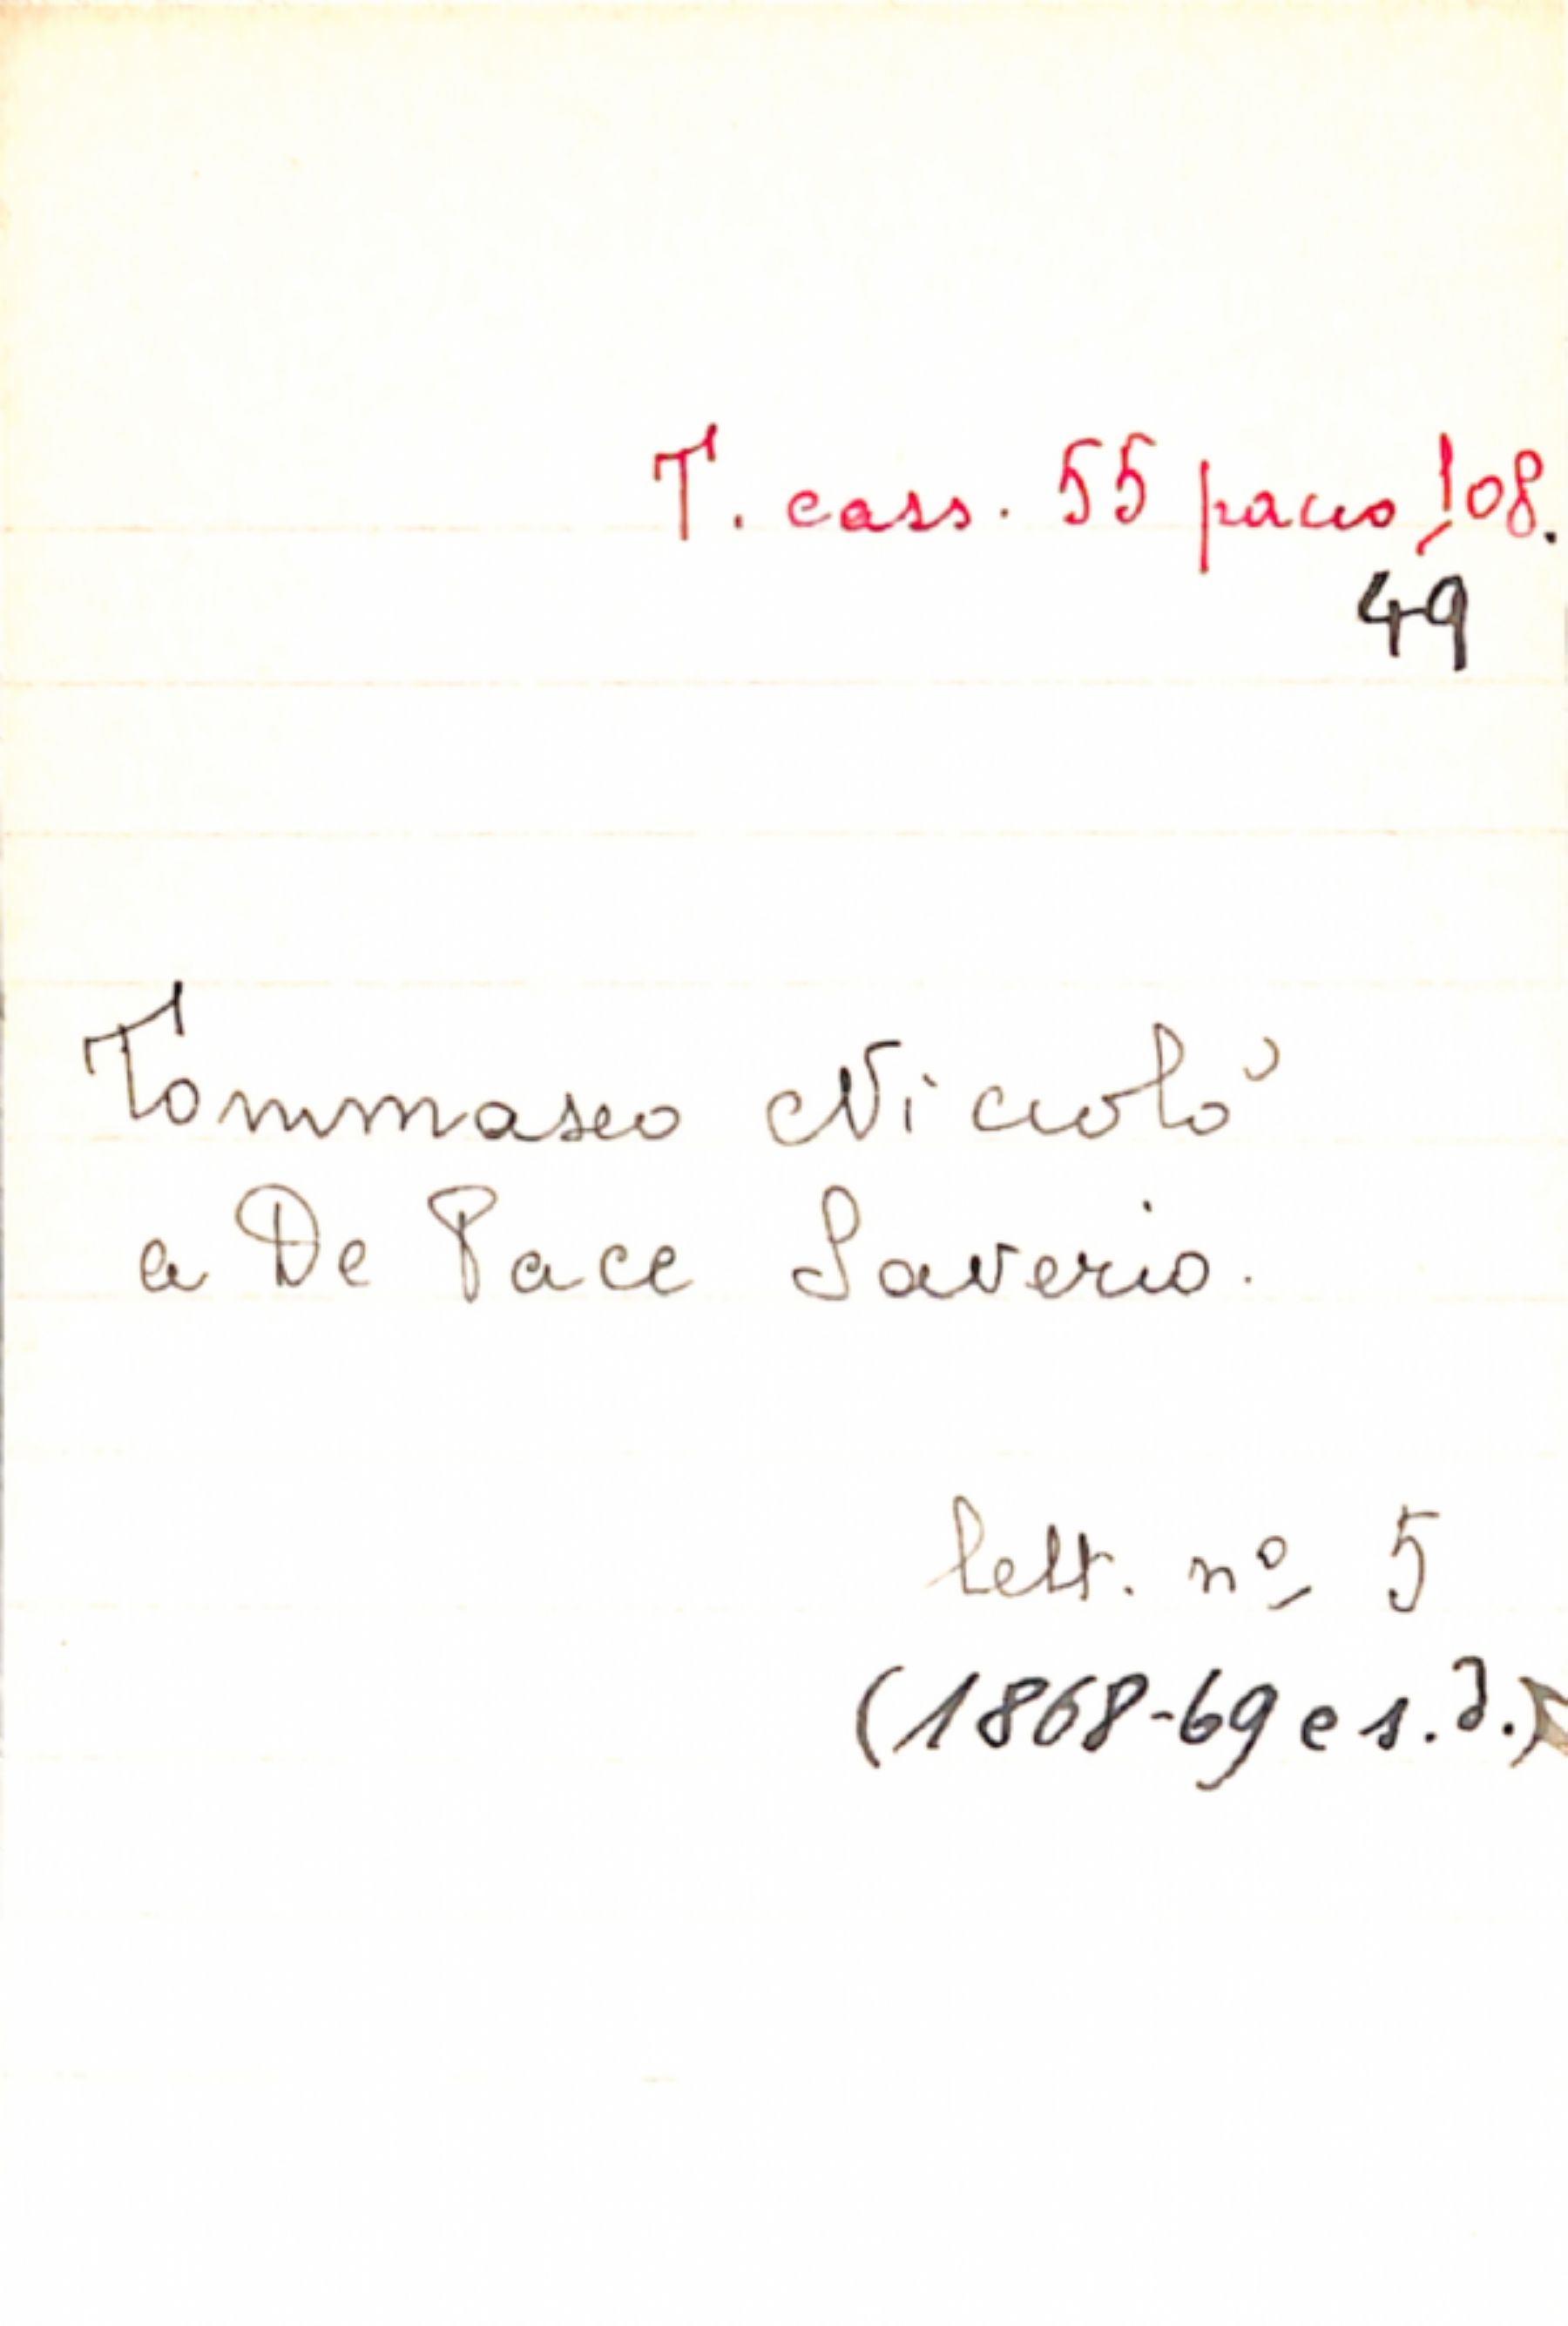 T. cass. 55 pacco 108.
49
Tommaseo Niccolò
a De Pace Saverio.
lett. nº 5
(1868-69 e s.d.)